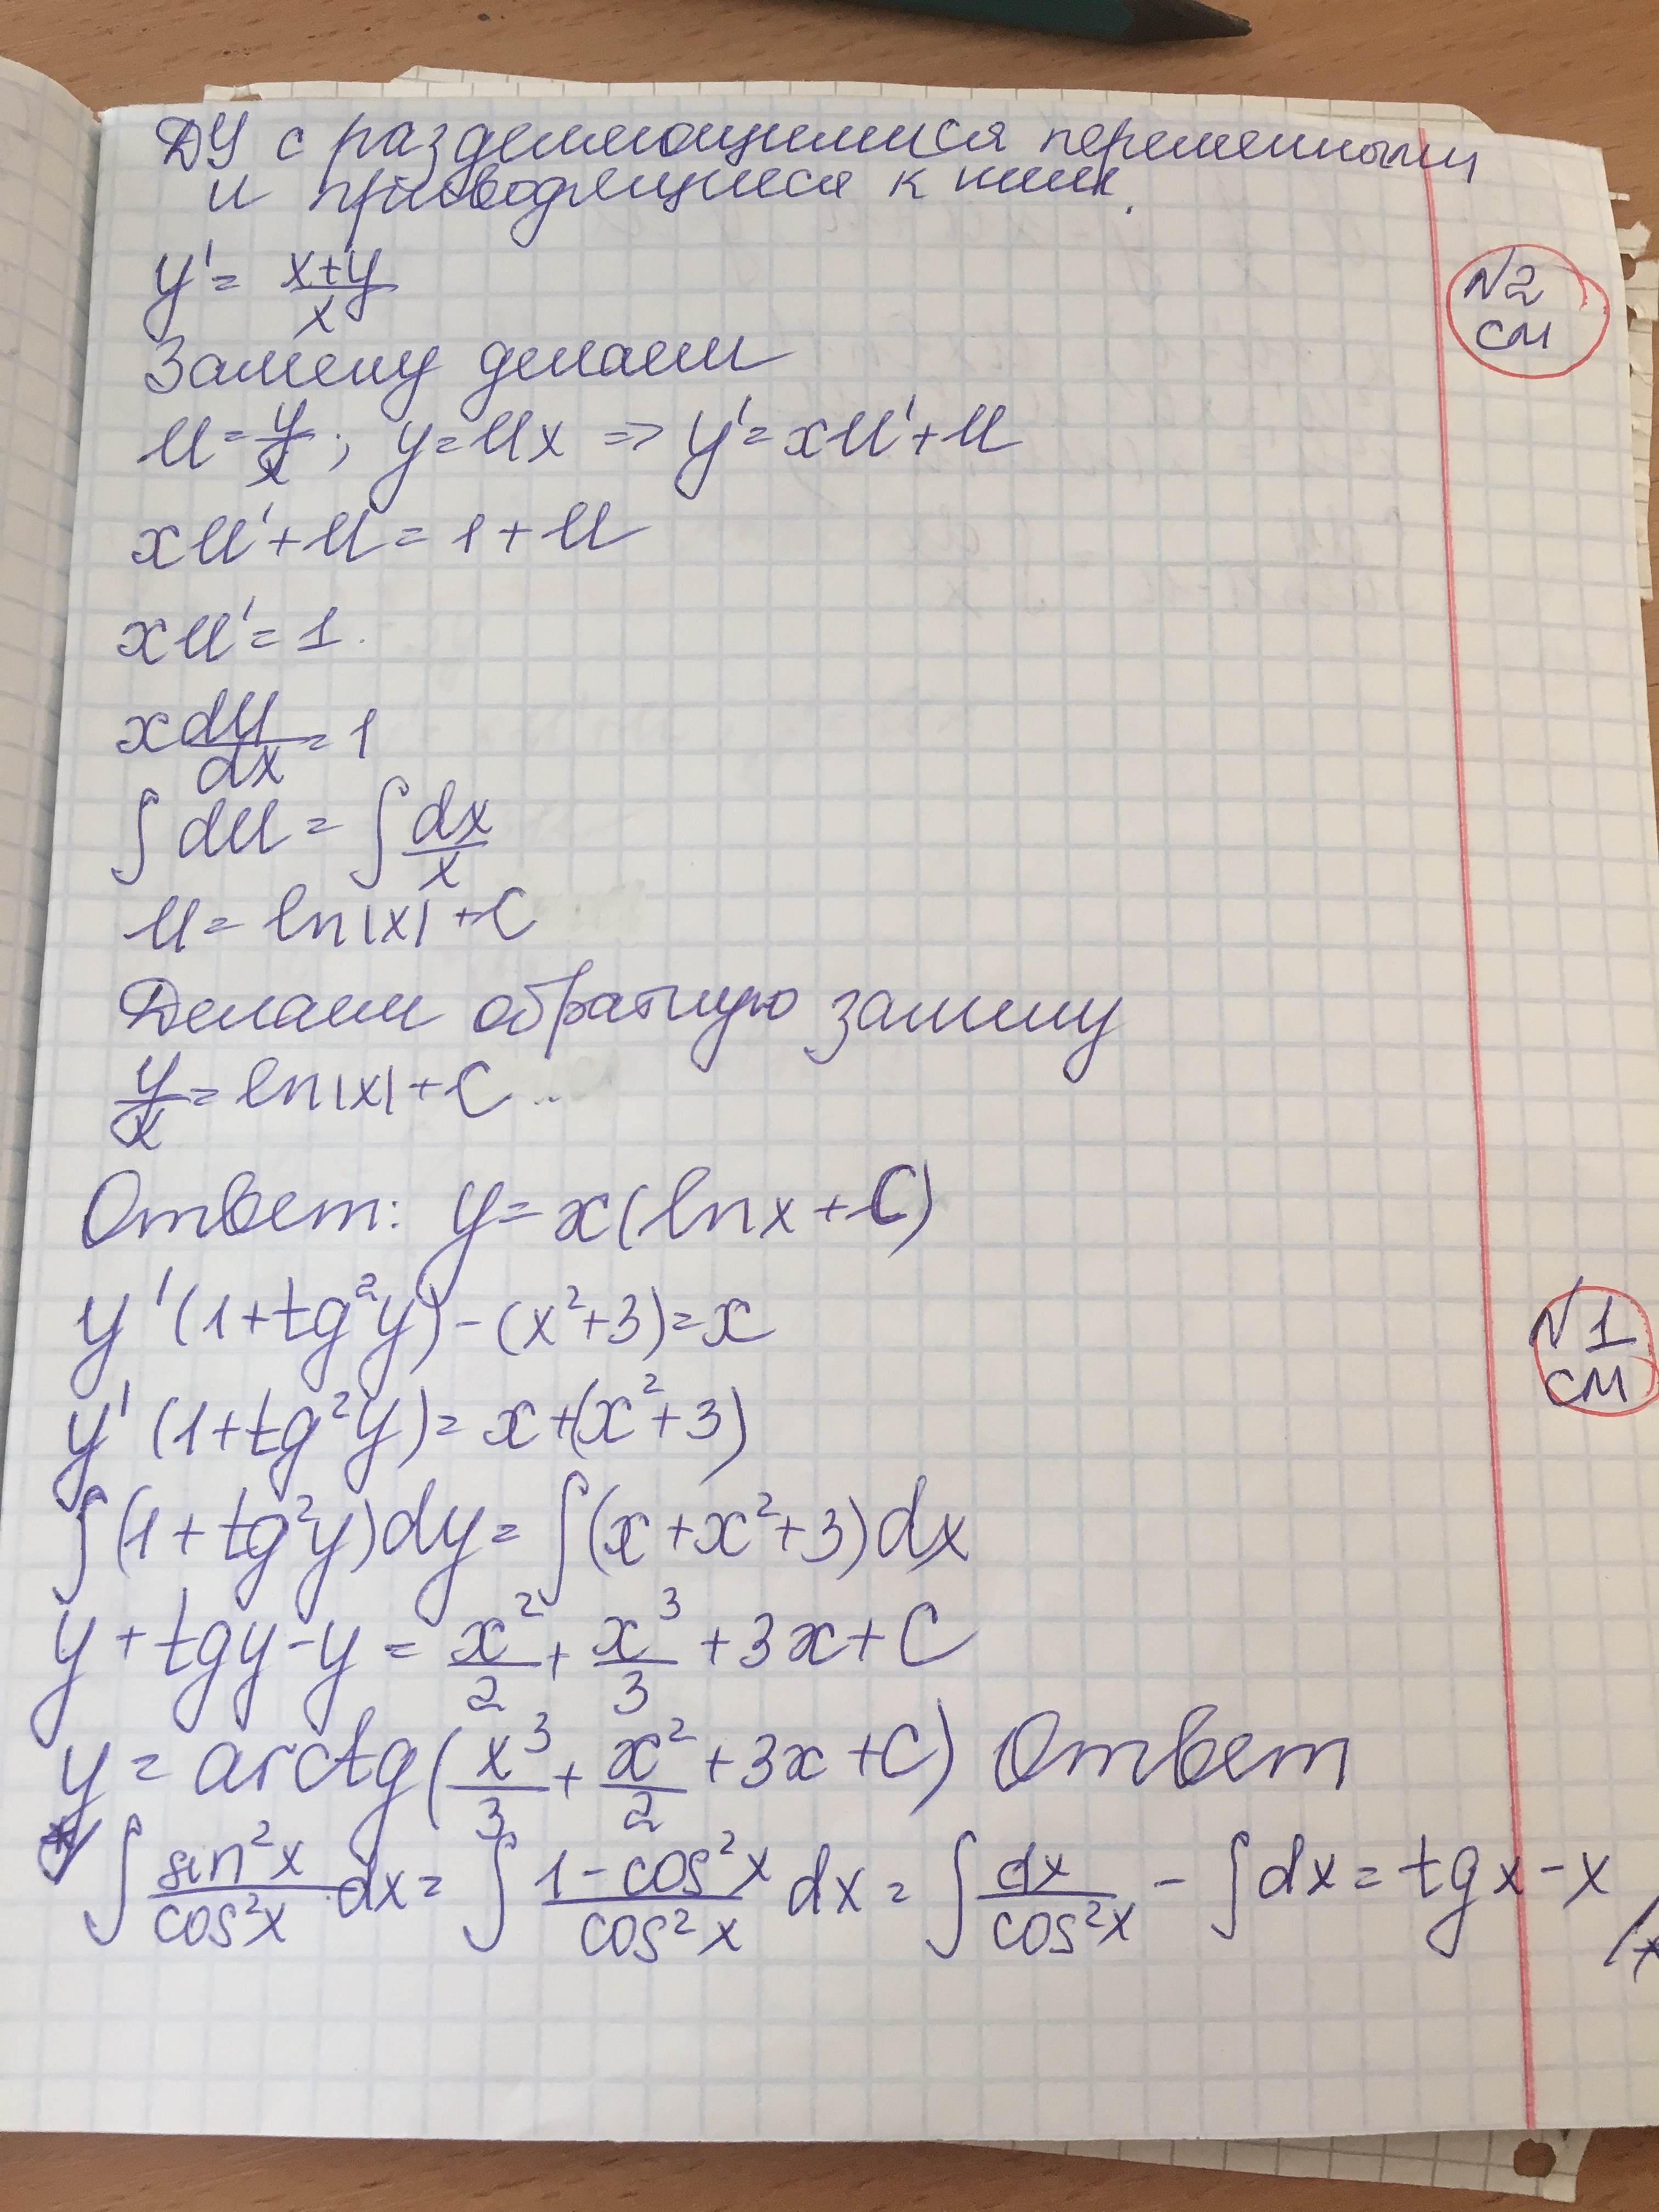 ДУ с разделяющимися переменными
и приводящиеся к ним.
y' = (x+y)/x
№2
см
Замену делаем
u = y/x ; y = ux => y' = xu' + u
xu' + u = 1 + u
xu' = 1.
x du/dx = 1
∫ du = ∫ dx/x
u = ln|x| + C
Делаем обратную замену
y/x = ln|x| + C
Ответ: y = x(lnx + C)
y'(1+tg²y) - (x²+3) = x
№1
см
y'(1+tg²y) = x + (x²+3)
∫(1+tg²y)dy = ∫(x+x²+3)dx
y + tgy - y = x²/2 + x³/3 + 3x + C
y = arctg(x³/3 + x²/2 + 3x + C) Ответ
* ∫ sin²x/cos²x dx = ∫ (1-cos²x)/cos²x dx = ∫ dx/cos²x - ∫dx = tgx - x